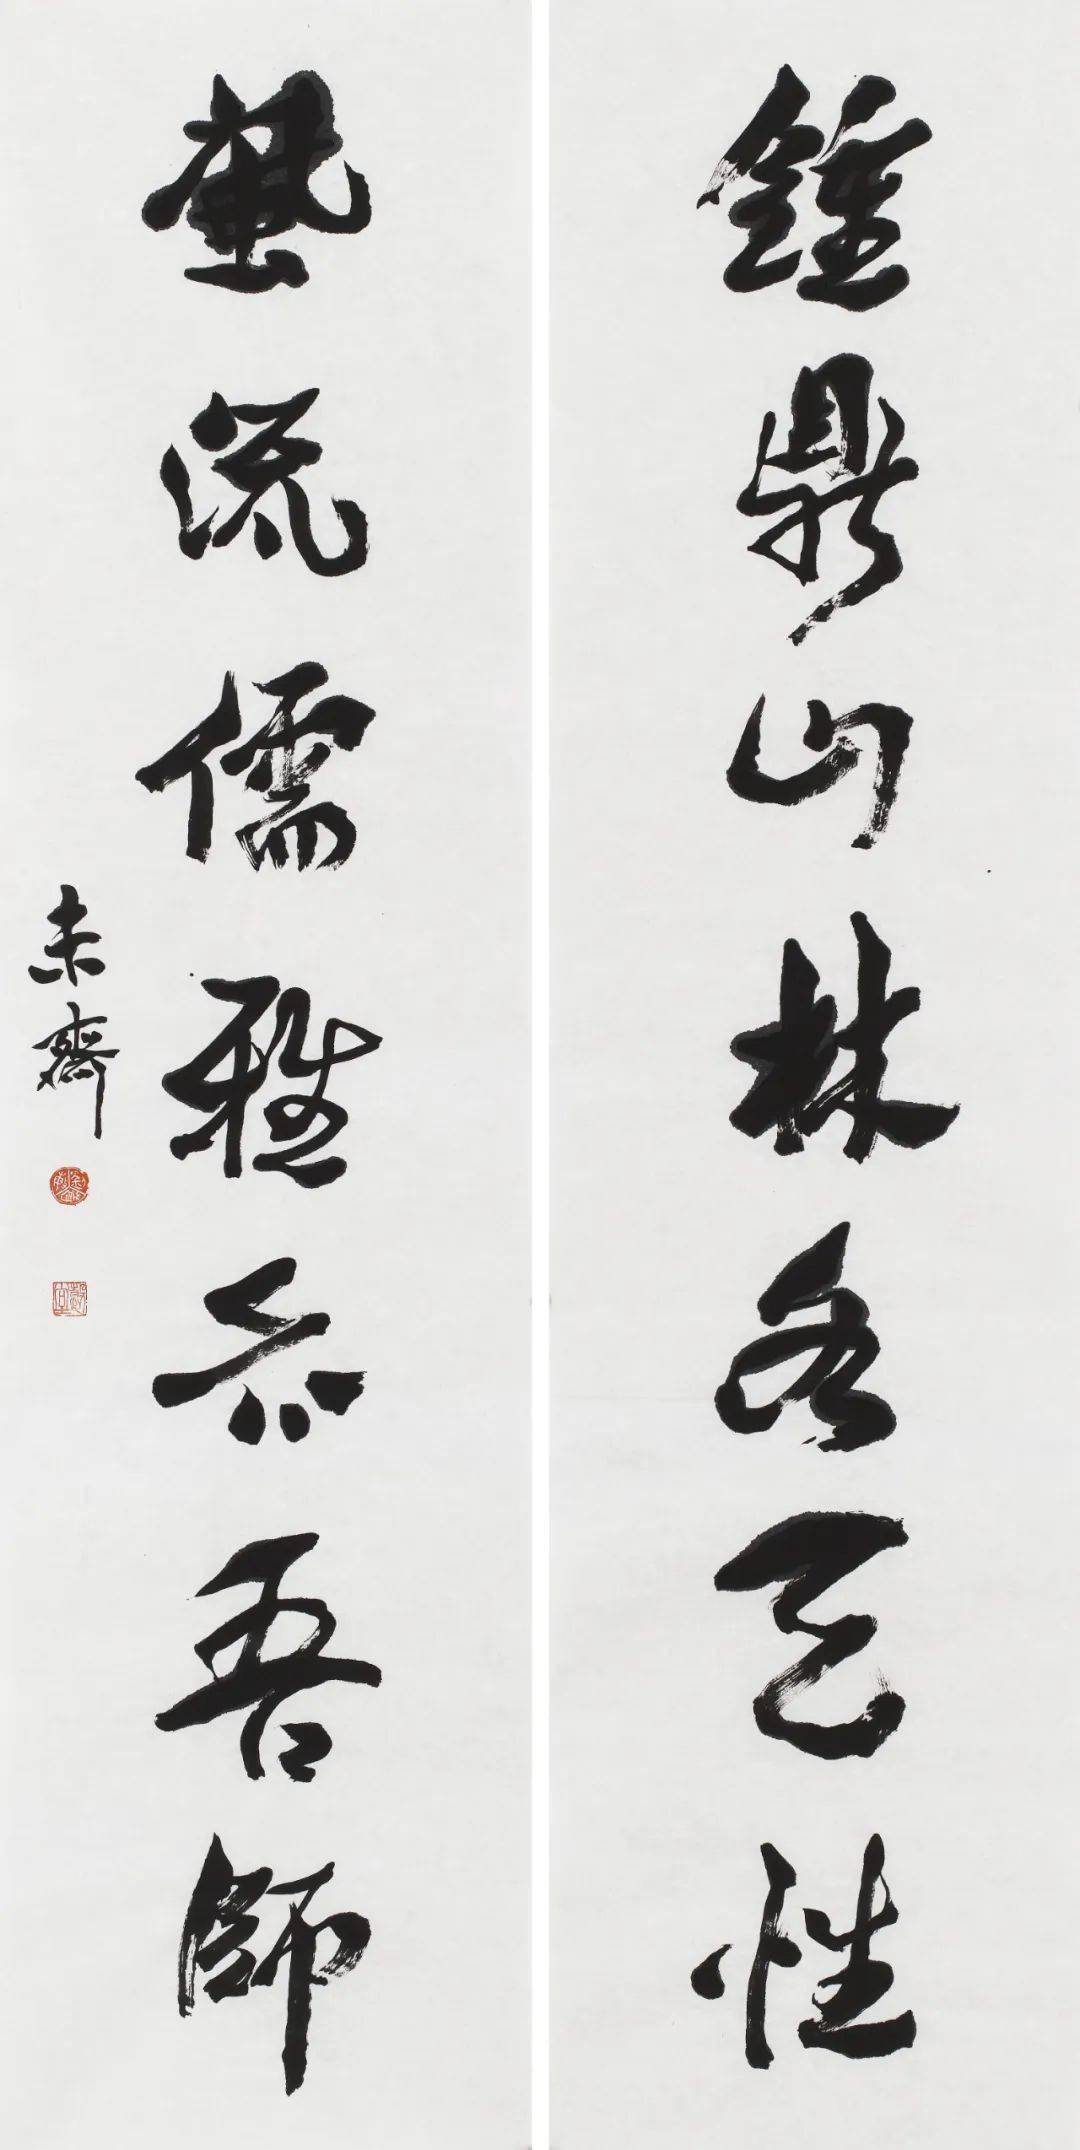 鍾鼎山林各天性
風流儒雅亦吾師
未齋